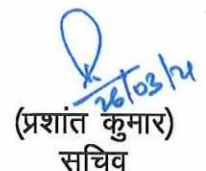 26/03/21
(प्रशांत कुमार)
सचिव